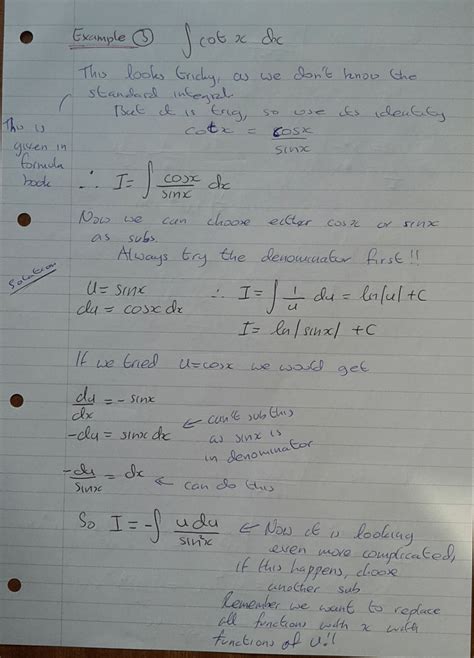 Example ③ ∫ cot x dx
This looks tricky, as we don't know the
standard integral.
But it is trig, so use its identity
This is
given in
formula
book
cotx = cosx/sinx
∴ I = ∫ cosx/sinx dx
Now we can choose either cosx or sinx
as subs.
Always try the denominator first!!
Solution
u = sinx ∴ I = ∫ 1/u du = ln|u| + C
du = cosx dx
I = ln|sinx| + C
If we tried u=cosx we would get
du/dx = -sinx
-du = sinx dx ← can't sub this
as sinx is
in denominator
-du/sinx = dx ← can do this
So I = -∫ u du/sin²x ← Now it is looking
even more complicated,
if this happens, choose
another sub
Remember we want to replace
all functions with x with
functions of u!!